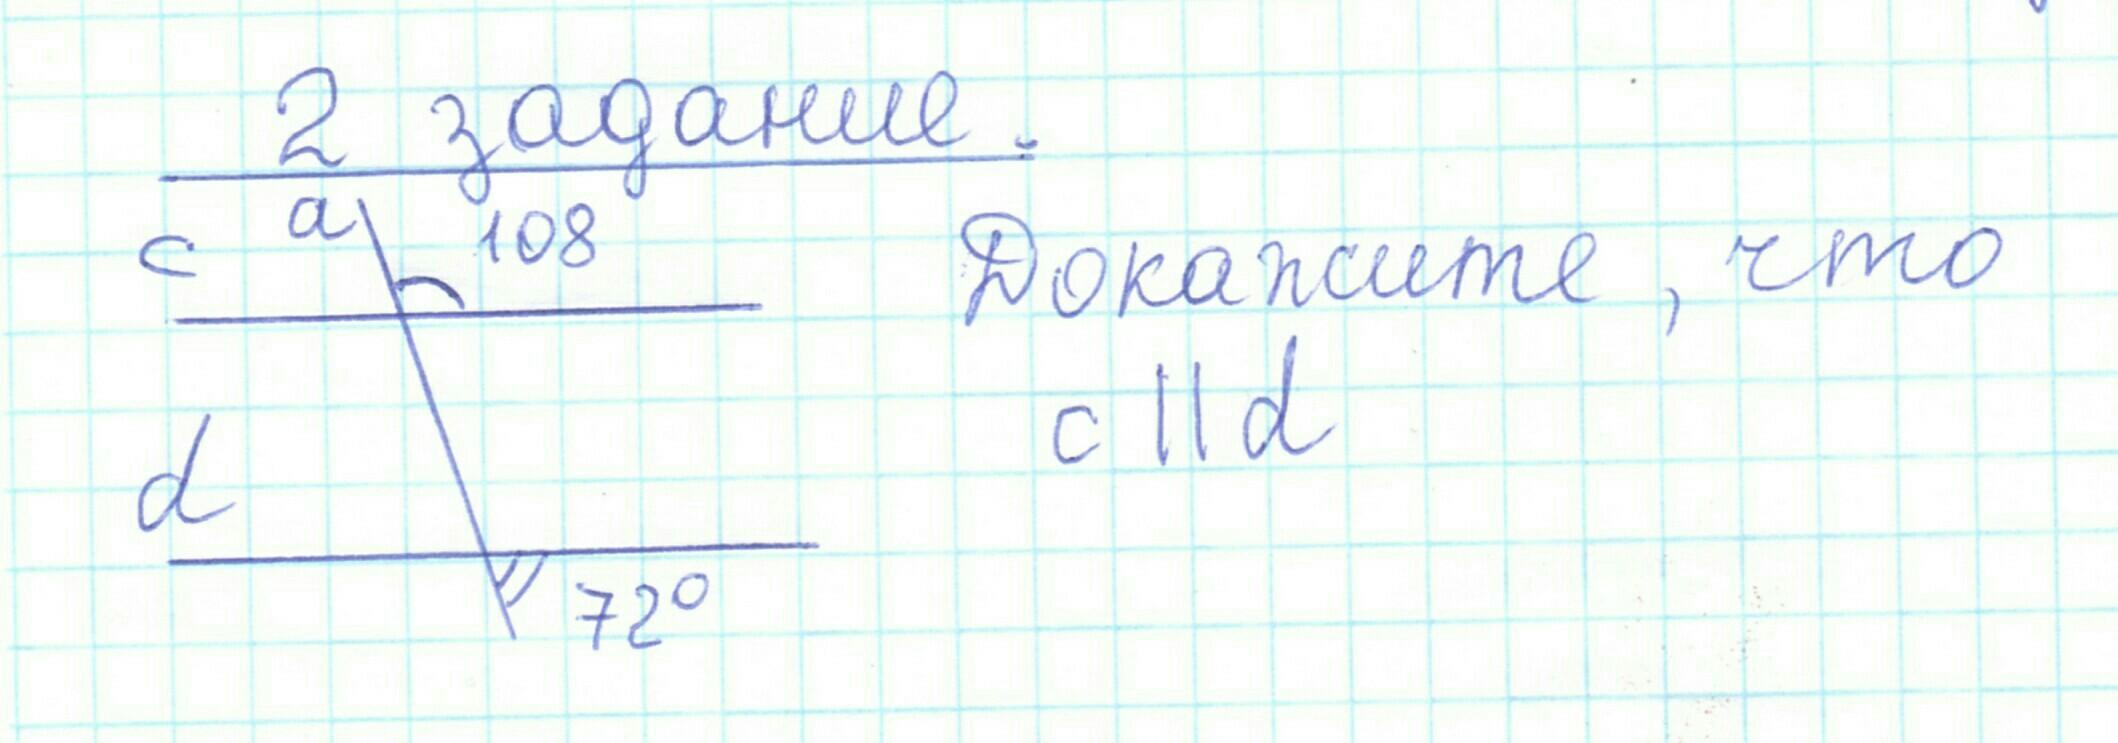 2 задание.
a 108
c
Докажите, что
c || d
d
72°